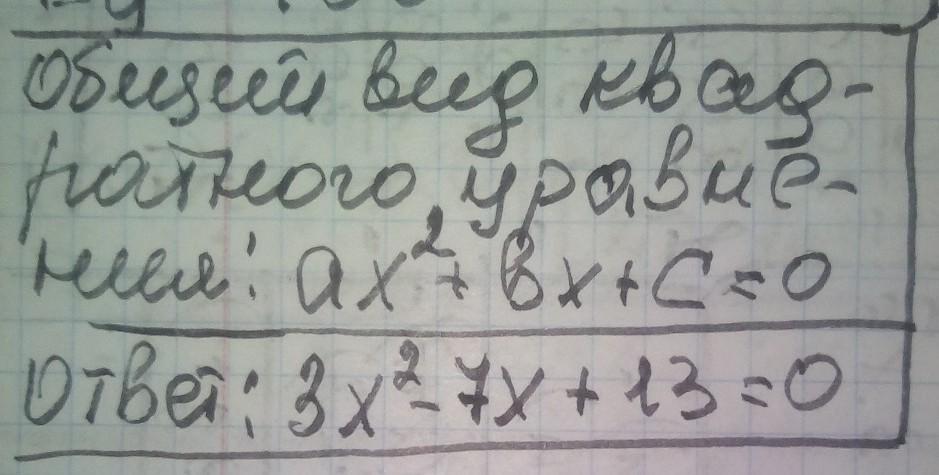 Общий вид квад-
ратного уравне-
ния: ax²+ bx+c=0
Ответ: 3x²-7x+13=0